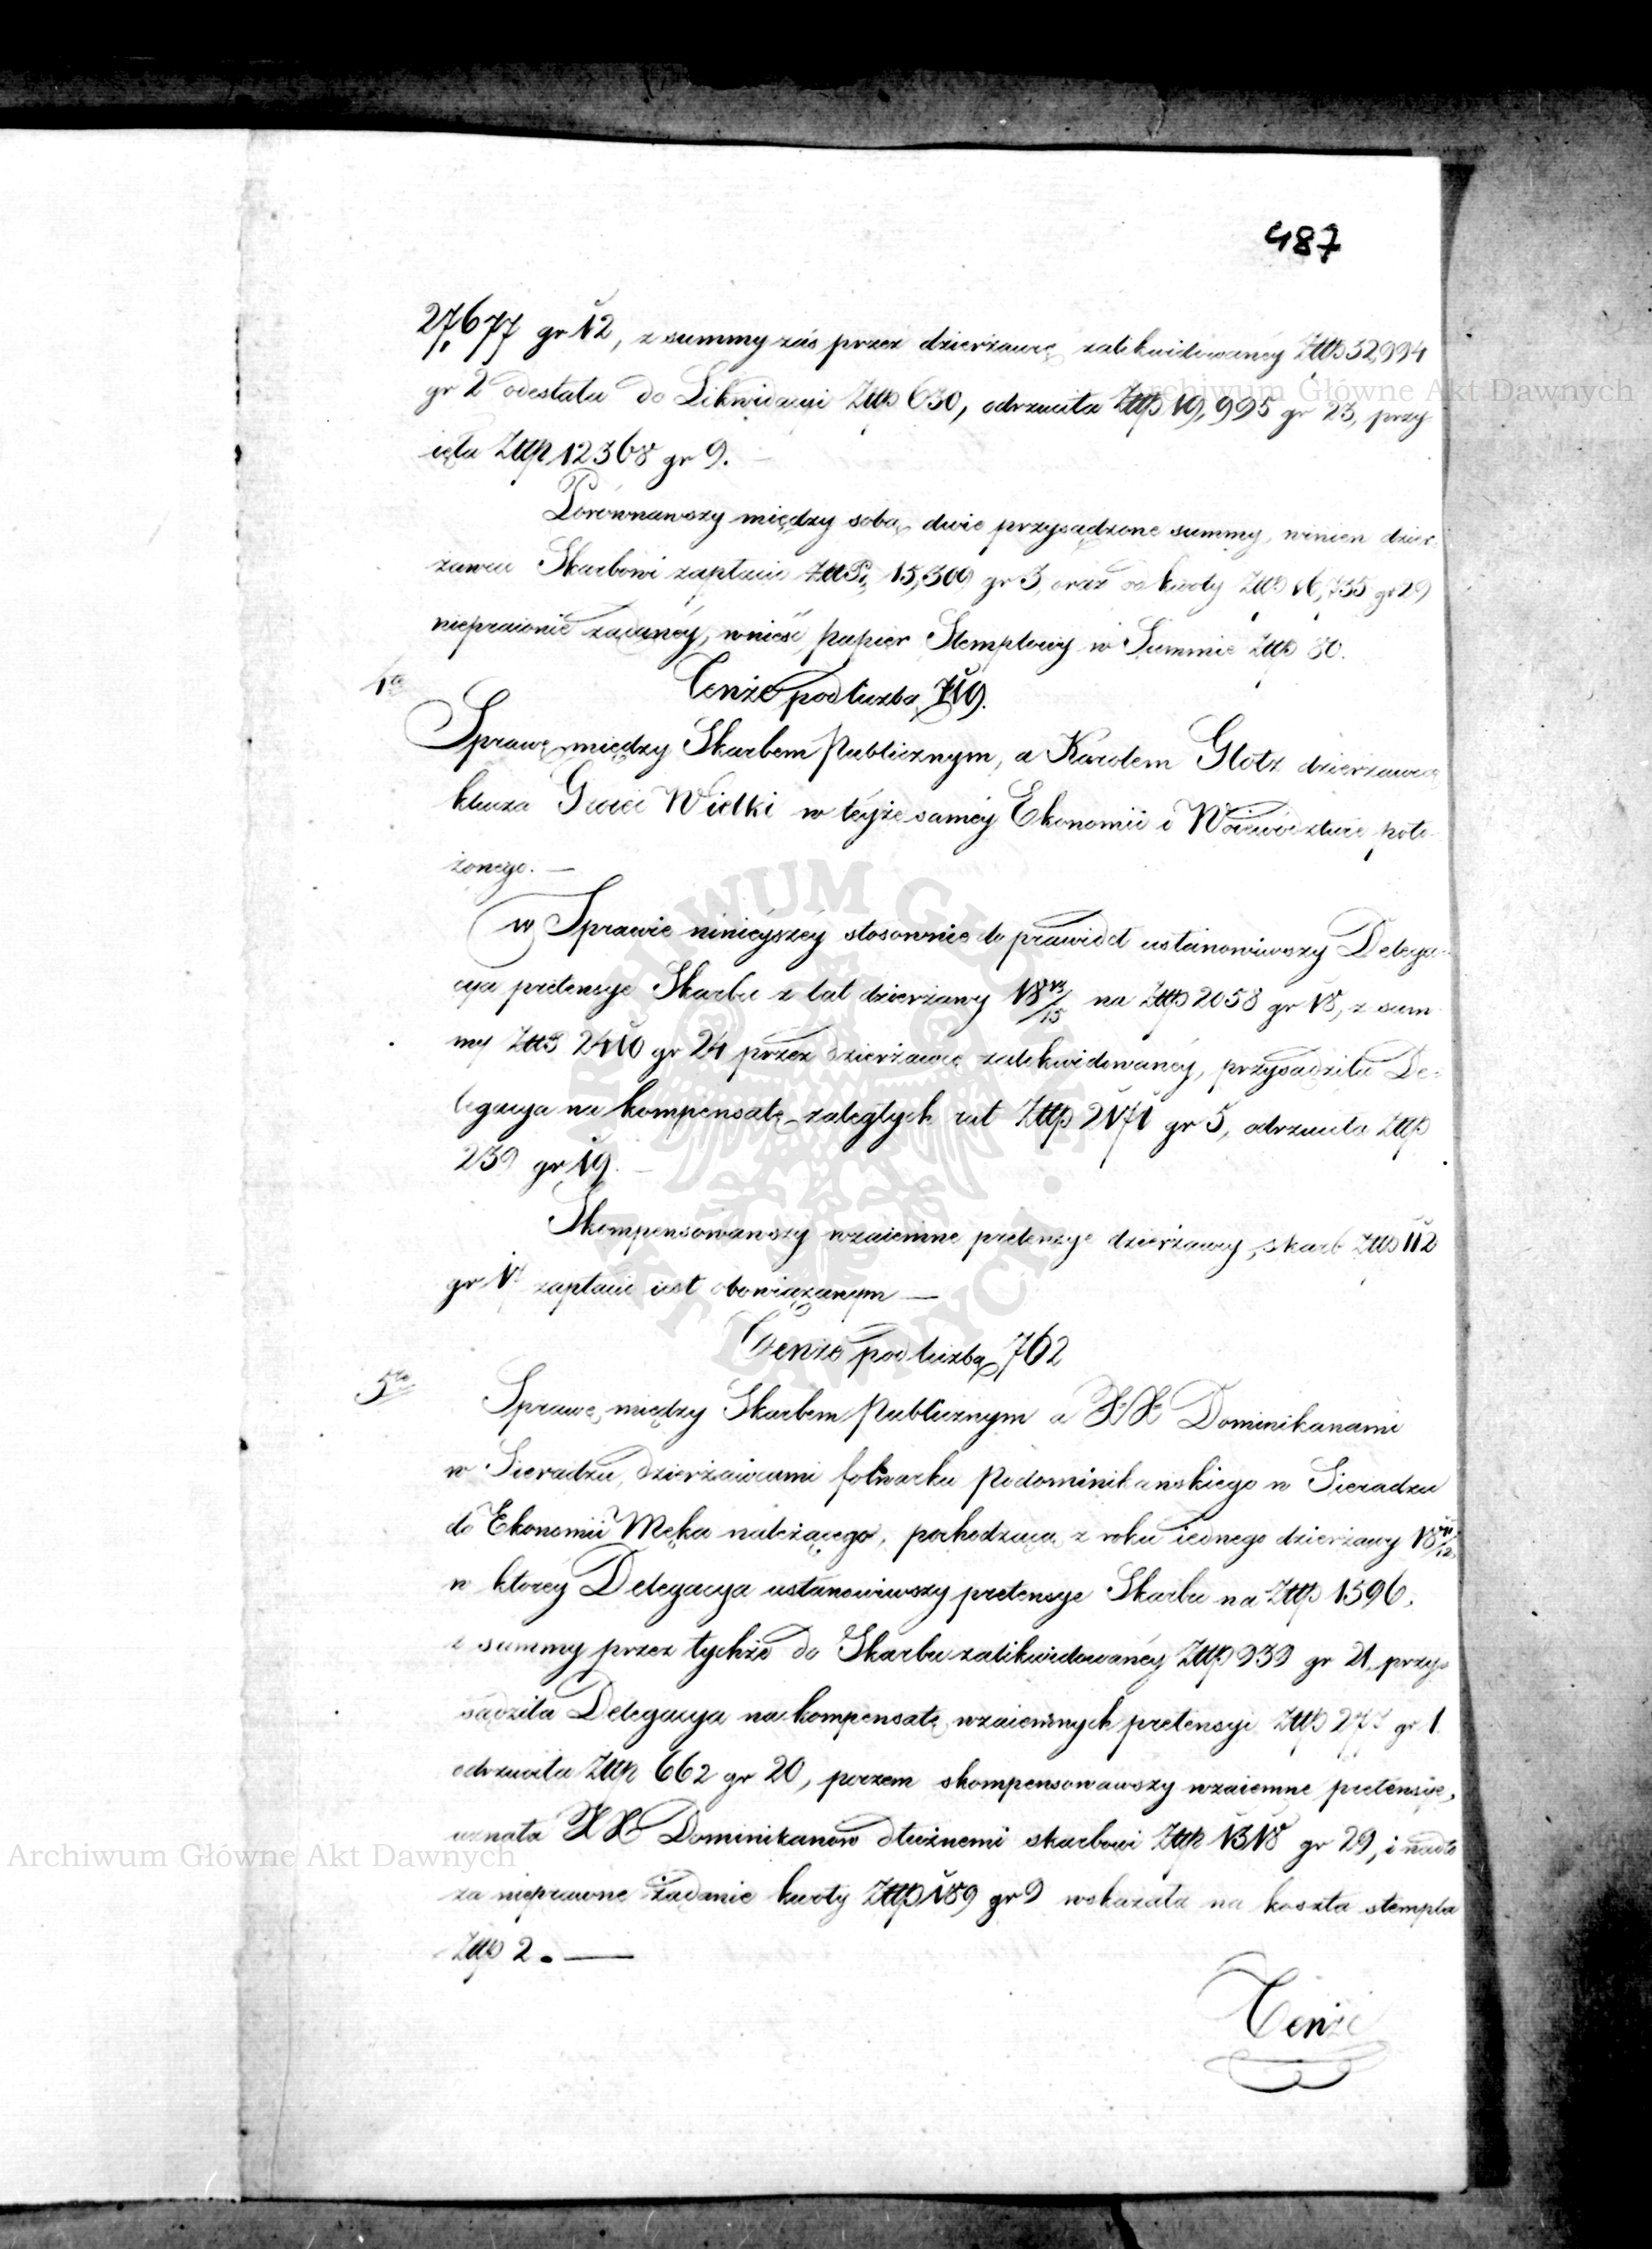 487
27,677 gr 12, z summy zaś przez dzierżawcę zalikwidowanéy Złtp 32,994
gr 2 odesłała do Likwidacyi Złtp 630, odrzuciła Złtp 19,995 gr 23, przy-
ięła Złtp 12368 gr 9. —
Porównawszy między sobą dwie przysądzone summy, winien dzier-
żawca Skarbowi zapłacić Złtp 15,309 gr 3, oraz od kwoty Złtp 16,735 gr 29
nieprawnie żądanéy, wnieść papier Stemplowy w Summie Złtp 80.
Tenże pod liczbą 719.
Sprawę między Skarbem Publicznym, a Karolem Glotz dzierżawcą
klucza Wielki w téyże saméy Ekonomii i Woiewództwie poło-
żonego. —
W Sprawie ninieyszéy stosownie do prawideł ustanowiwszy Delega-
cya pretensye Skarbu z lat dzierżawy 18 13/15 na Złtp 2058 gr 18, z sum-
my Złtp 2410 gr 24 przez dzierżawcę zalikwidowanéy, przysądziła De-
legacya na kompensatę zaległych rat Złtp 2171 gr 5, odrzuciła Złtp
239 gr 19. —
Skompensowawszy wzaiemne pretensye dzierżawcy, skarb Złtp 112
gr zapłacić iest obowiązanym —
Tenże pod liczbą 762
5te
Sprawę między Skarbem Publicznym a XX Dominikanami
w Sieradzu, dzierżawcami folwarku Podominikańskiego w Sieradzu
do Ekonomii Męka należącego, pochodzącą z roku iednego dzierżawy 18 11/12
w któréy Delegacya ustanowiwszy pretensye Skarbu na Złtp 1596.
z summy przez tychże do Skarbu zalikwidowanéy Złtp 939 gr 21, przy-
sądziła Delegacya na kompensatę wzaiemnych pretensyi Złtp 277 gr 1
odrzuciła Złtp 662 gr 20, poczem skompensowawszy wzaiemne pretensye,
uznała XX Dominikanów dłużnemi skarbowi Złtp 1318 gr 29, i nadto
za nieprawne żądanie kwoty Złtp 189 gr 9 wskazała na koszta stempla
Złtp 2. —
Tenże
Archiwum Główne Akt Dawnych
Archiwum Główne Akt Dawnych
ARCHIWUM GŁÓWNE AKT DAWNYCH